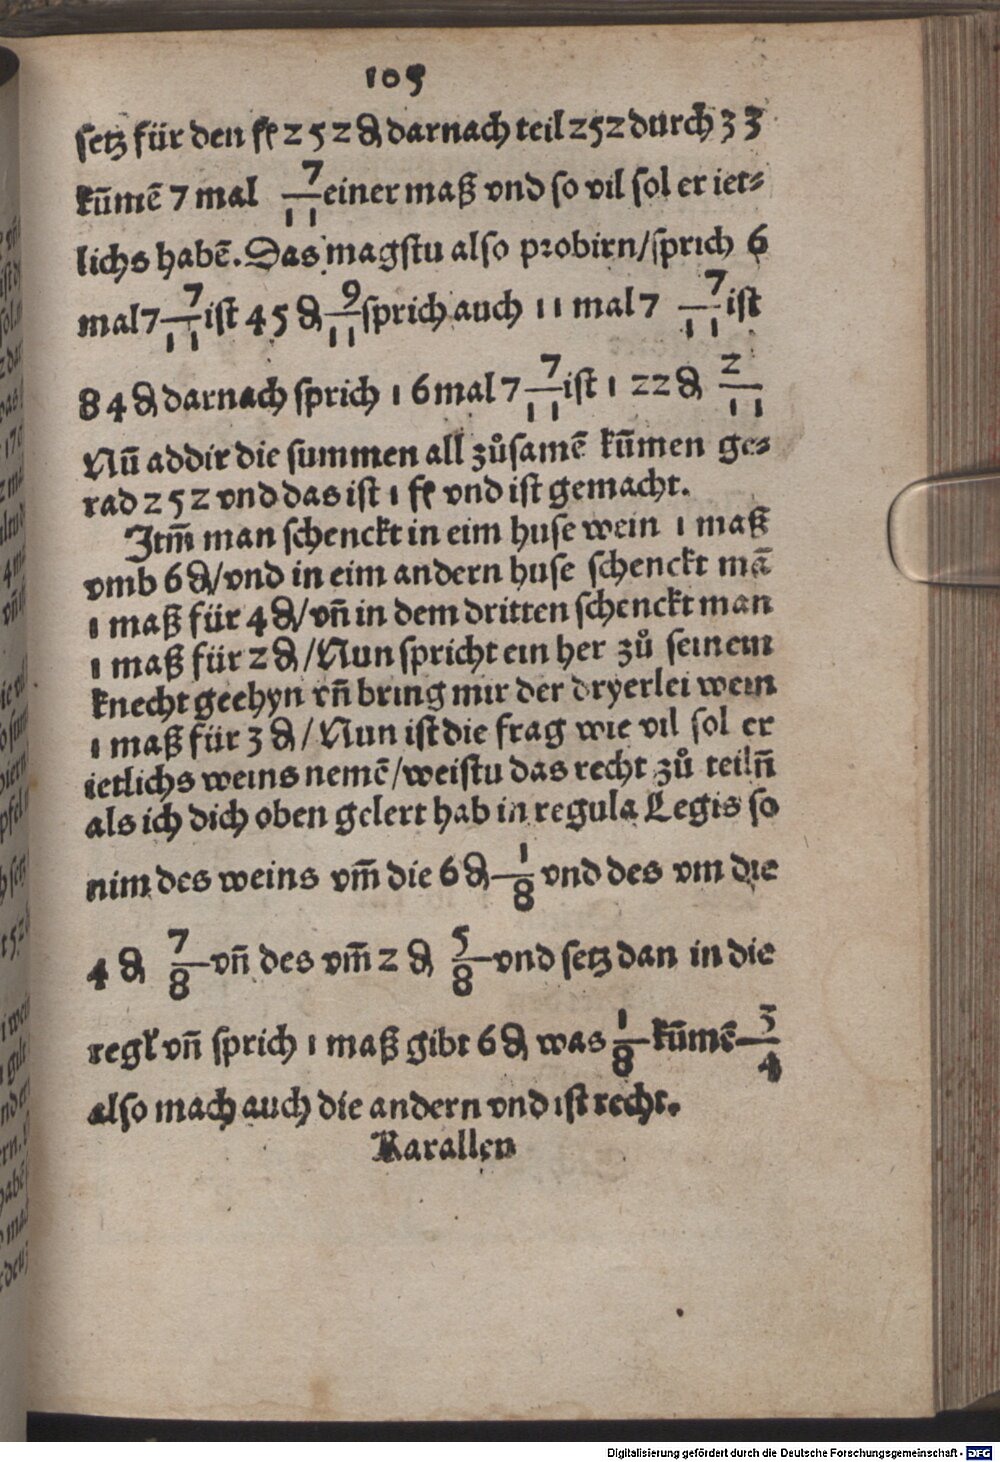 105
setz für den fl 252 ₰ darnach teil 252 durch 33
kūmē 7 mal 7/11 einer maß vnd so vil sol er iet⸗
lichs habē. Das magstu also probirn/sprich 6
mal 7 7/11 ist 45 ₰ 9/11 sprich auch 11 mal 7 7/11 ist
84 ₰ darnach sprich 16 mal 7 7/11 ist 122 ₰ 2/11
Nū addir die summen all zůsamē kūmen ge⸗
rad 252 vnd das ist 1 fl vnd ist gemacht.
Itm̄ man schenckt in eim huse wein 1 maß
vmb 6 ₰/vnd in eim andern huse schenckt mā
1 maß für 4 ₰/vn̄ in dem dritten schenckt man
1 maß für 2 ₰/Nun spricht ein her zů seinem
knecht geehyn vn̄ bring mir der dryerlei wein
1 maß für 3 ₰/Nun ist die frag wie vil sol er
ietlichs weins nemē/weistu das recht zů teiln̄
als ich dich oben gelert hab in regula Legis so
nim des weins vm̄ die 6 ₰ 1/8 vnd des vm die
4 ₰ 7/8 vn̄ des vm̄ 2 ₰ 5/8 vnd setz dan in die
regl vn̄ sprich 1 maß gibt 6 ₰ was 1/8 kūmē 3/4
also mach auch die andern vnd ist recht.
Karallen
Digitalisierung gefördert durch die Deutsche Forschungsgemeinschaft - DFG